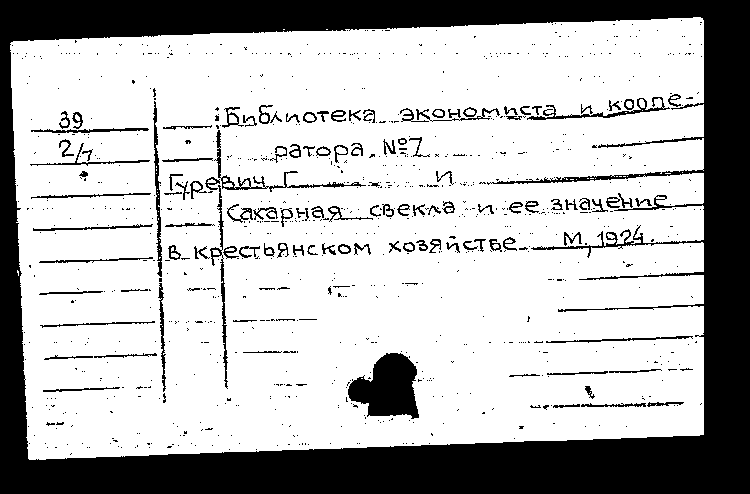 39
2/7
Библиотека экономиста и коопе-
ратора. №7
Гуревич, Г. И
Сахарная свекла и ее значение
в крестьянском хозяйстве М, 1924.